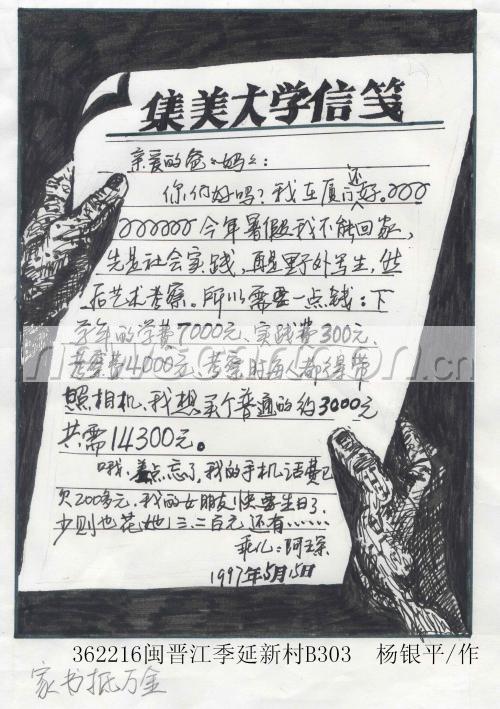 集美大学信笺
亲爱的爸〻妈〻:
你们好吗?我在厦门还好。
今年暑假我不能回家,
先是社会实践,再是野外写生,然
后艺术考察。所以需要一点钱:下
学年的学费7000元、实践费300元、
考察费4000元、考察时每人都得带
照相机,我想买个普通的约3000元
共需14300元。
哦,差点忘了,我的手机话费已
欠200多元,我的女朋友快要生日了,
少则也花她三、二百元,还有……
乖儿:阿琛
1997年5月15日
362216闽晋江季延新村B303 杨银平/作
家书抵万金